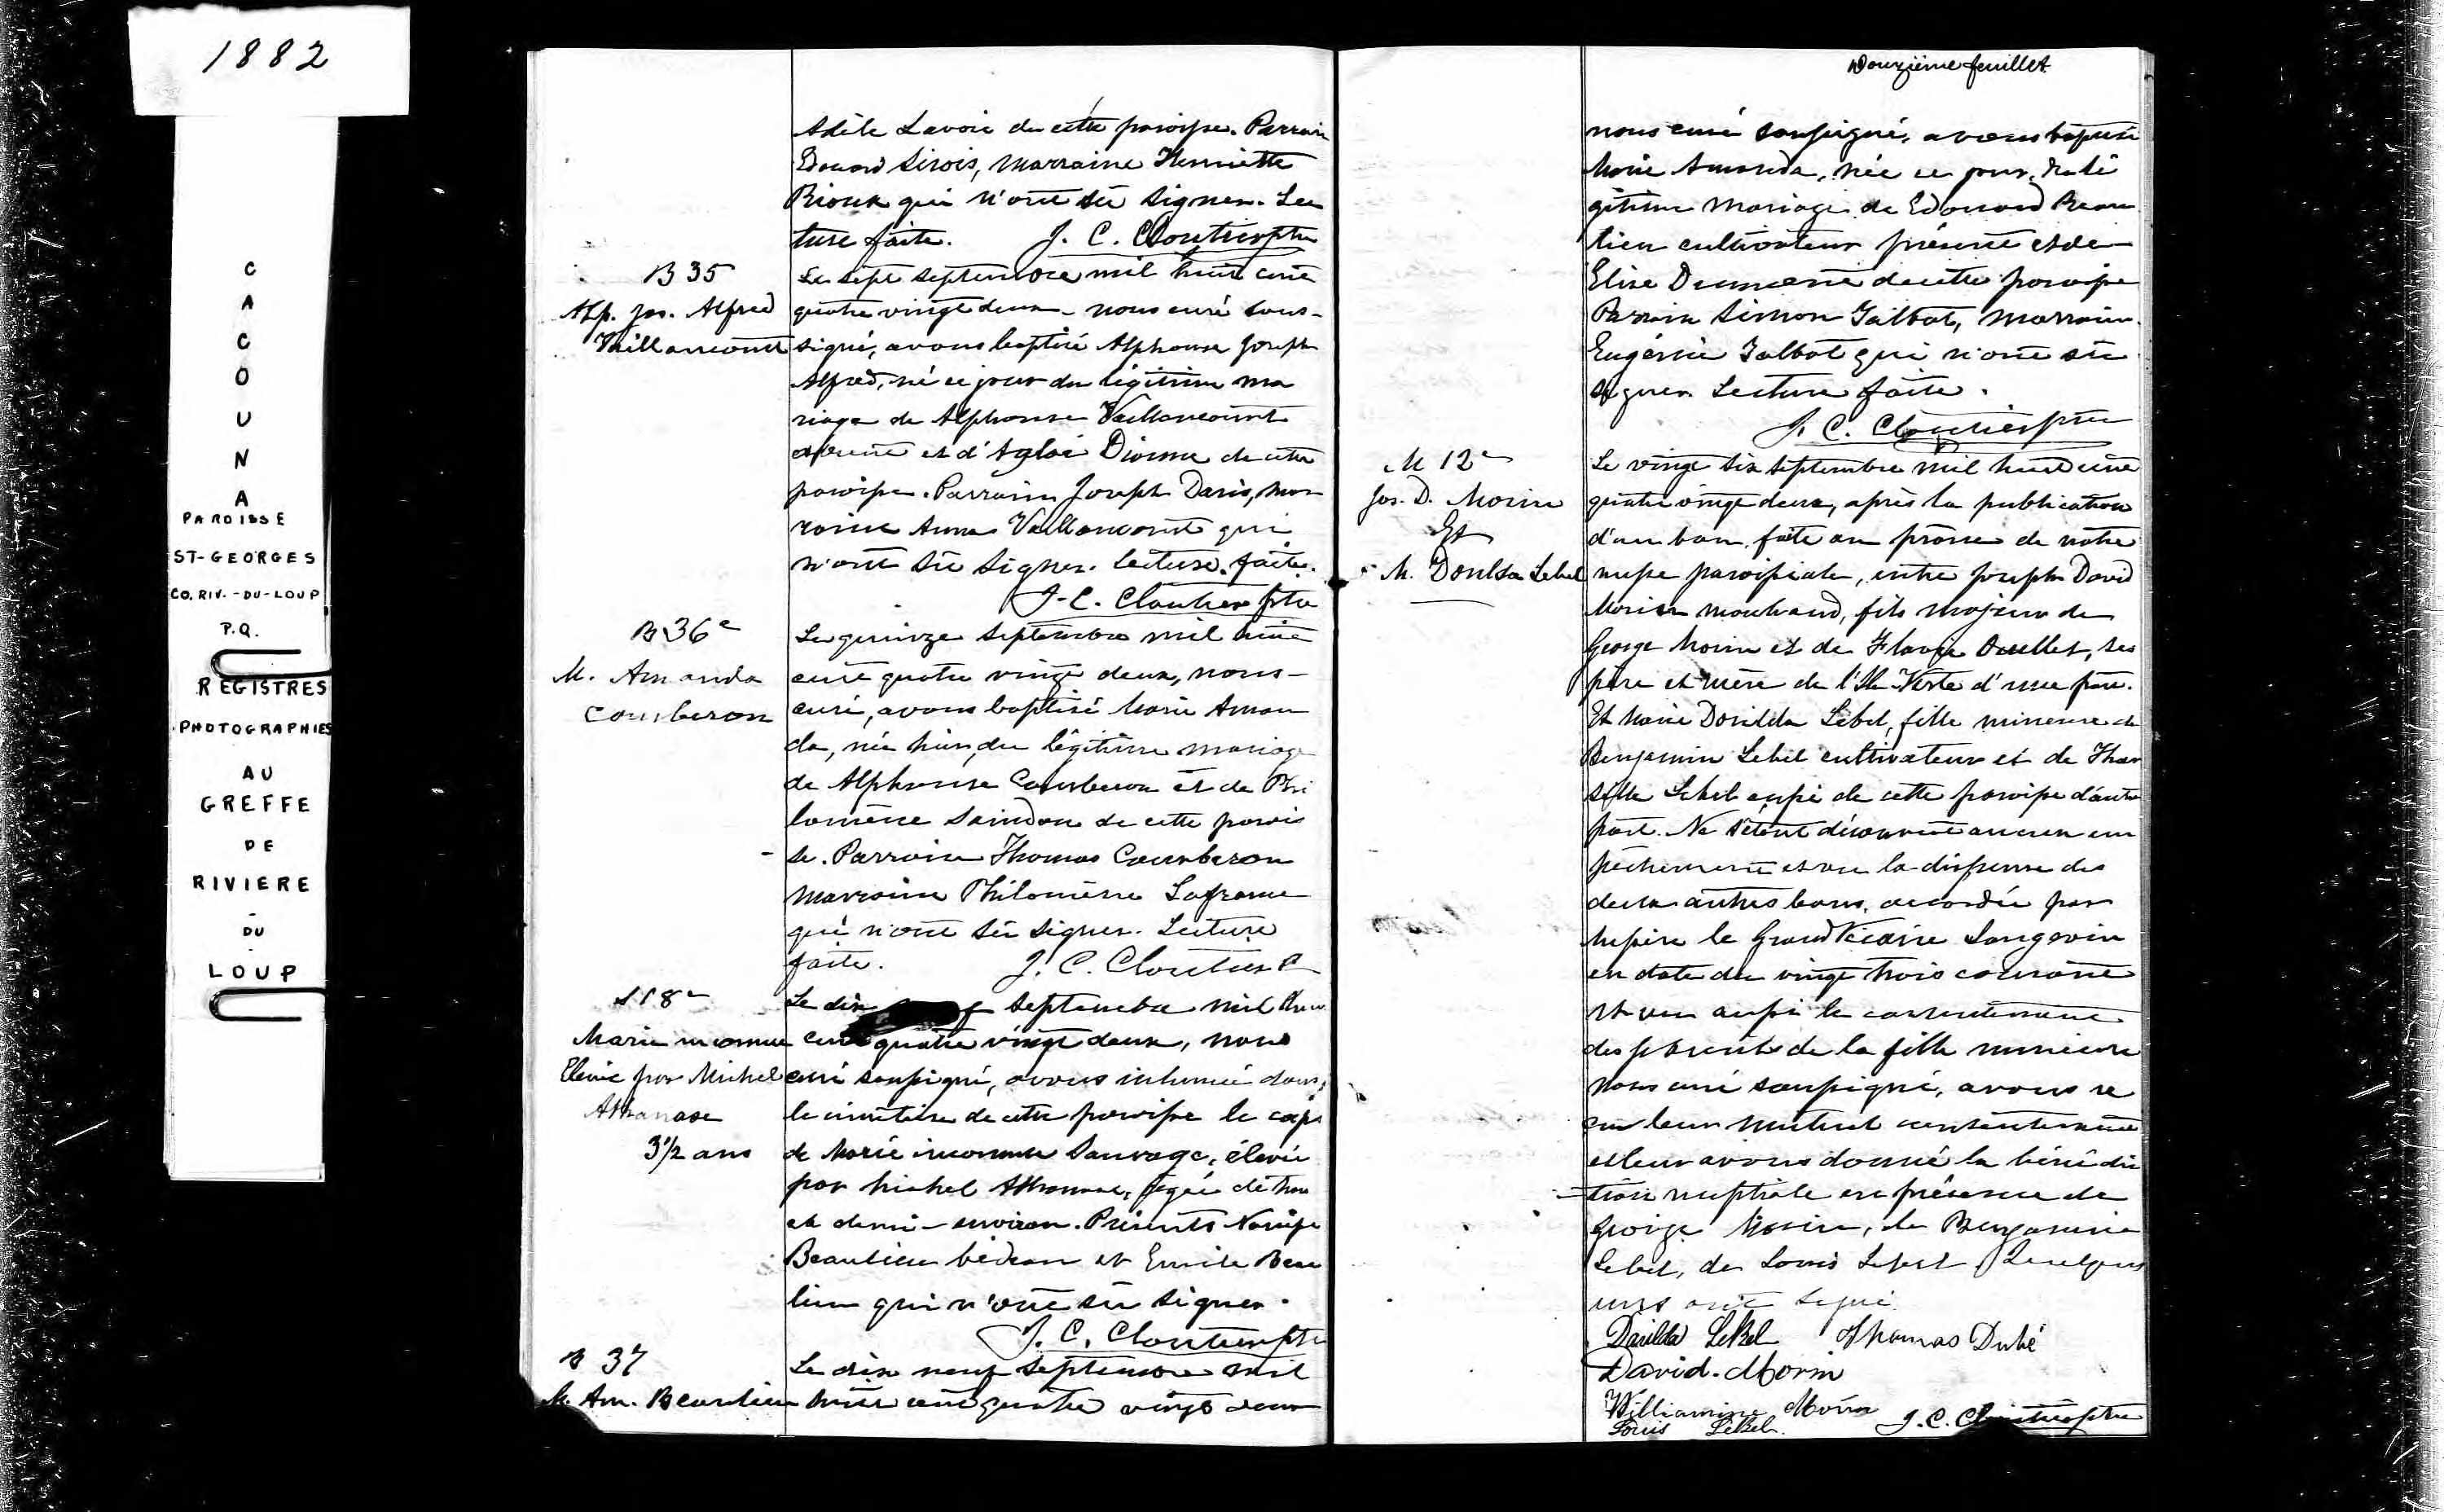 1882
C
A
C
O
U
N
A
PAROISSE
ST-GEORGES
CO. RIV. - DU - LOUP
P.Q.
REGISTRES
PHOTOGRAPHIES
AU
GREFFE
DE
RIVIERE
-
DU
-
LOUP
Adèle Lavoie de cette paroisse. Parrain
Edouard Sirois, Marraine Henriette
Rioux qui n'ont su signer. Lec
ture faite. J. C. Cloutier ptre
B 35
Alp. Jos. Alfred
Vaillancourt
Le sept septembre mil huit cent
quatre vingt deux nous curé sous-
signé, avons baptisé Alphonse Joseph
Alfred, né ce jour du légitime ma
riage de Alphonse Vaillancourt
absent et d'Aglaé Dionne de cette
paroisse. Parrain Joseph Davis, mar
raine Anna Vaillancourt qui
n'ont su signer. Lecture faite.
J. C. Cloutier ptre
B 36e
M. Amanda
Courberon
Le quinze septembre mil huit
cent quatre vingt deux, nous
curé, avons baptisé Marie Aman
da, née hier, du légitime mariage
de Alphonse Courberon et de Phi
lomène Saindon de cette parois
se. Parrain Thomas Courberon
marraine Philomène Lafrance
qui n'ont su signer. Lecture
faite. J. C. Cloutier P
S 18e
Marie inconnue
Elevée par Michel
Athanase
3 1/2 ans
Le dix septembre mil huit
cent quatre vingt deux, nous
curé soussigné, avons inhumé dans
le cimetière de cette paroisse le corps
de Marie inconnue Sauvage, élevée
par Michel Athanase, agée de trois
et demi environ. Présents Narcisse
Beaulieu bédeau et Emile Beau
lieu qui n'ont su signer.
J. C. Cloutier ptre
B 37
M. Am. Beaulieu
Le dix neuf septembre mil
huit cent quatre vingt deux
Douzième feuillet
nous curé soussigné, avons baptisé
Marie Amanda, née ce jour, du lé
gitime mariage de Edouard Beau
lieu cultivateur présent et de
Elise Dumont de cette paroisse
Parrain Simon Talbot, marraine
Eugénie Talbot qui n'ont su
signer. Lecture faite.
J. C. Cloutier ptre
M 12e
Jos. D. Morin
Et
M. Donilda Lebel
Le vingt six septembre mil huit cent
quatre vingt deux, après la publication
d'un ban faite au prône de notre
messe paroissiale, entre Joseph David
Morin marchand, fils majeur de
George Morin et de Flavie Ouellet, ses
père et mère de l'Isle Verte d'une part.
Et Marie Donilda Lebel, fille mineure de
Benjamin Lebel cultivateur et de Thar
sille Lebel aussi de cette paroisse d'autre
part. Ne s'étant découvert aucun em
pêchement et vu la dispense des
deux autres bans, accordée par
Messire le Grand Vicaire Langevin
en date du vingt trois courant
et vu aussi le consentement
des parents de la fille mineure
nous curé soussigné, avons re
çu leur mutuel consentement
et leur avons donné la bénédic
tion nuptiale en présence de
George Morin, de Benjamin
Lebel, de Louis Lebel Quelques
uns ont signé.
Donilda LeBel Thomas Dubé
David Morin
Williamine Morin J. C. Cloutier ptre
Louis LeBel